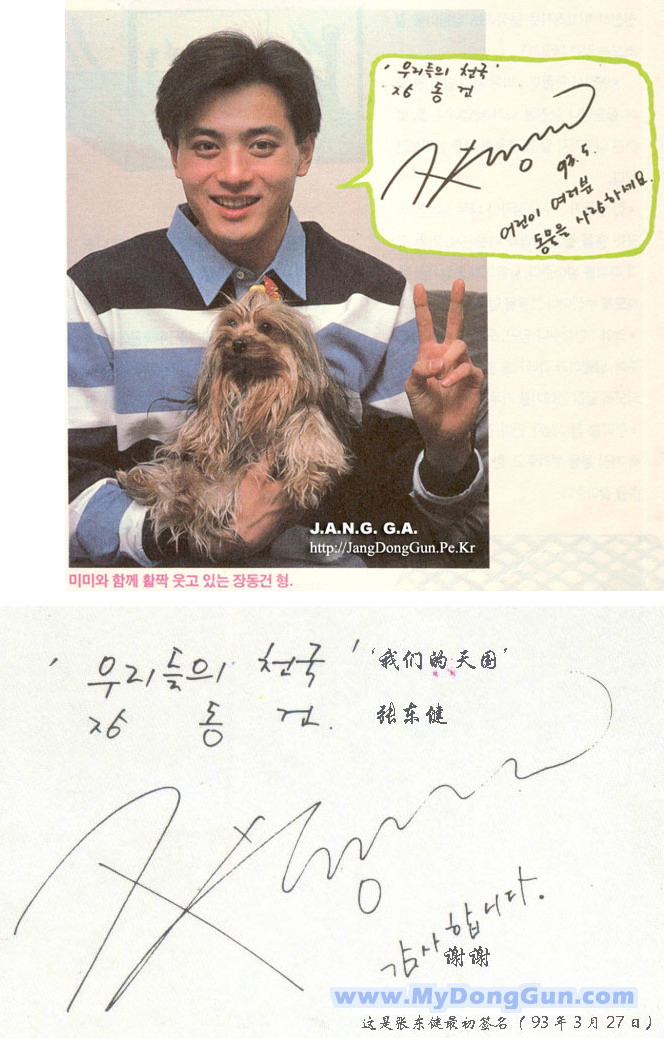 '우리들의 천국'
장 동 건
93. 5.
어린이 여러분
동물을 사랑하세요.
J.A.N.G. G.A.
http://JangDongGun.Pe.Kr
미미와 함께 활짝 웃고 있는 장동건 형.
'우리들의 천국' '我们的天国'
장 동 건. 张东健
감사합니다.
谢谢
www.MyDongGun.com
这是张东健最初签名（93年3月27日）